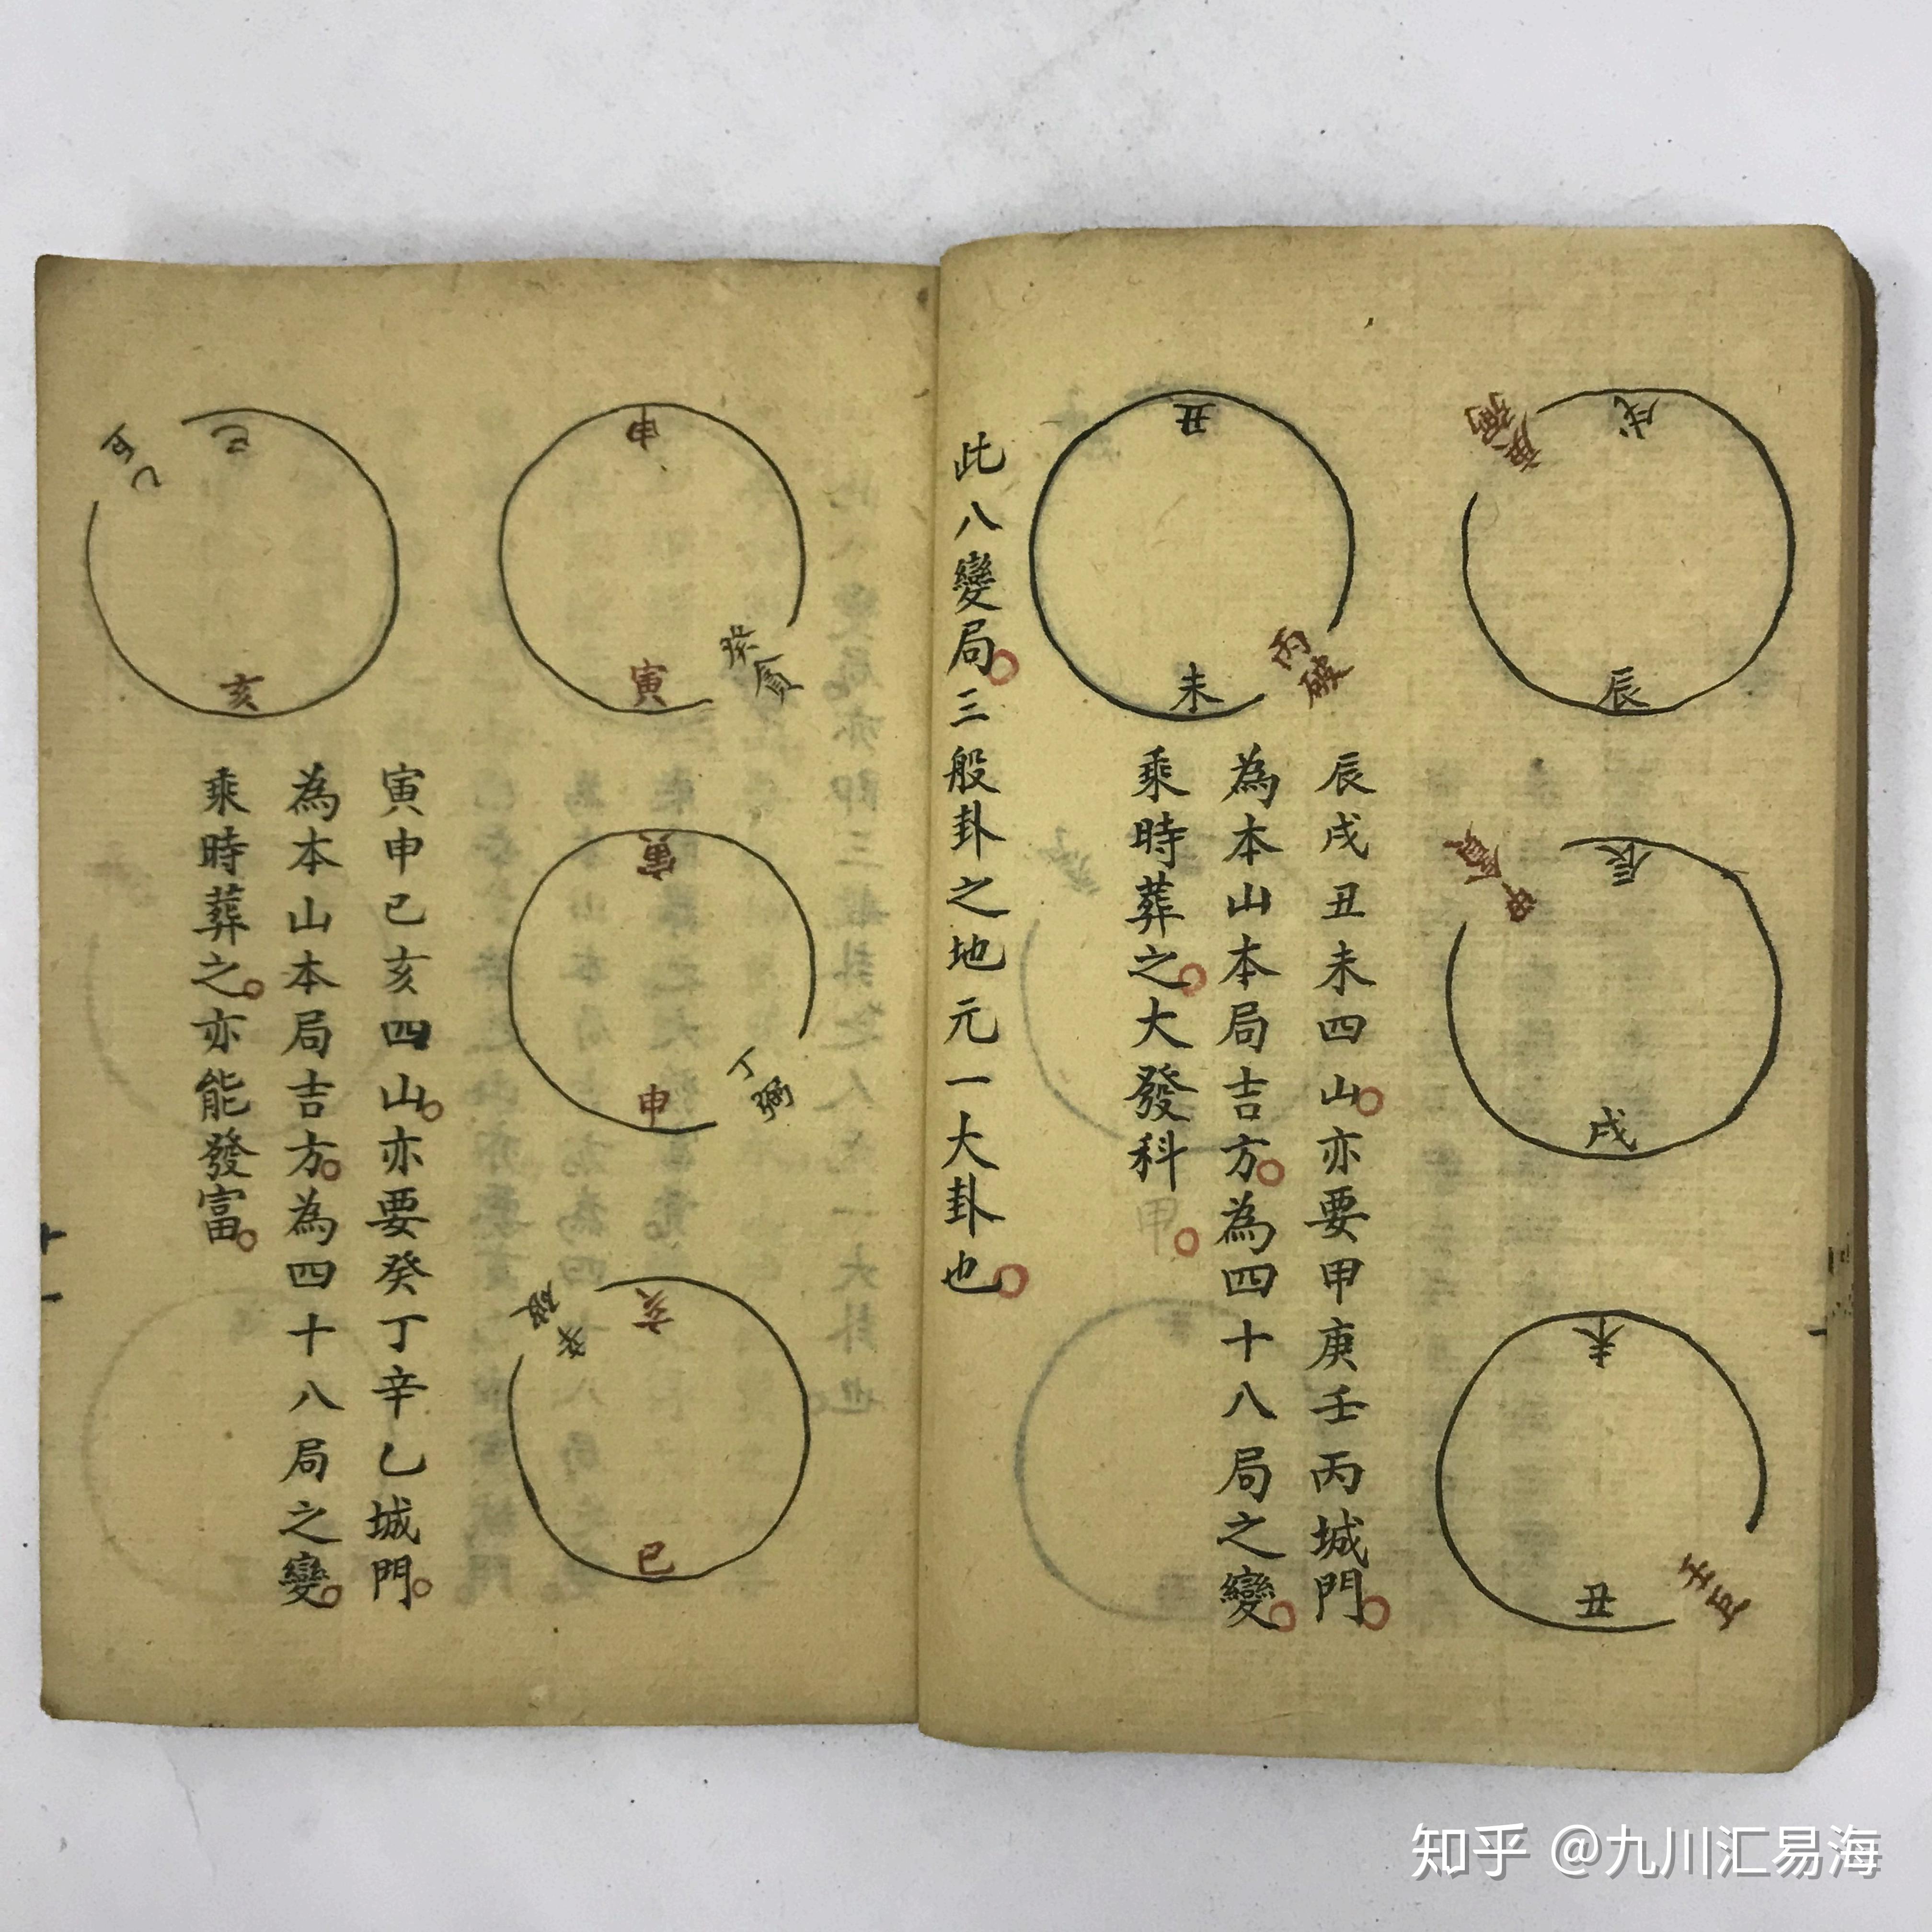 戌
辰
庚
弼
辰
戌
甲
貪
未
丑
壬
丑
未
丙
破
辰戌丑未四山亦要甲庚壬丙城門
為本山本局吉方為四十八局之變
乘時葬之大發科甲
此八變局三般卦之地元一大卦也
申
寅
癸
貪
寅
申
丁
弼
亥
巳
破
巳
亥
寅申巳亥四山亦要癸丁辛乙城門
為本山本局吉方為四十八局之變
乘時葬之亦能發富
知乎 @九川汇易海